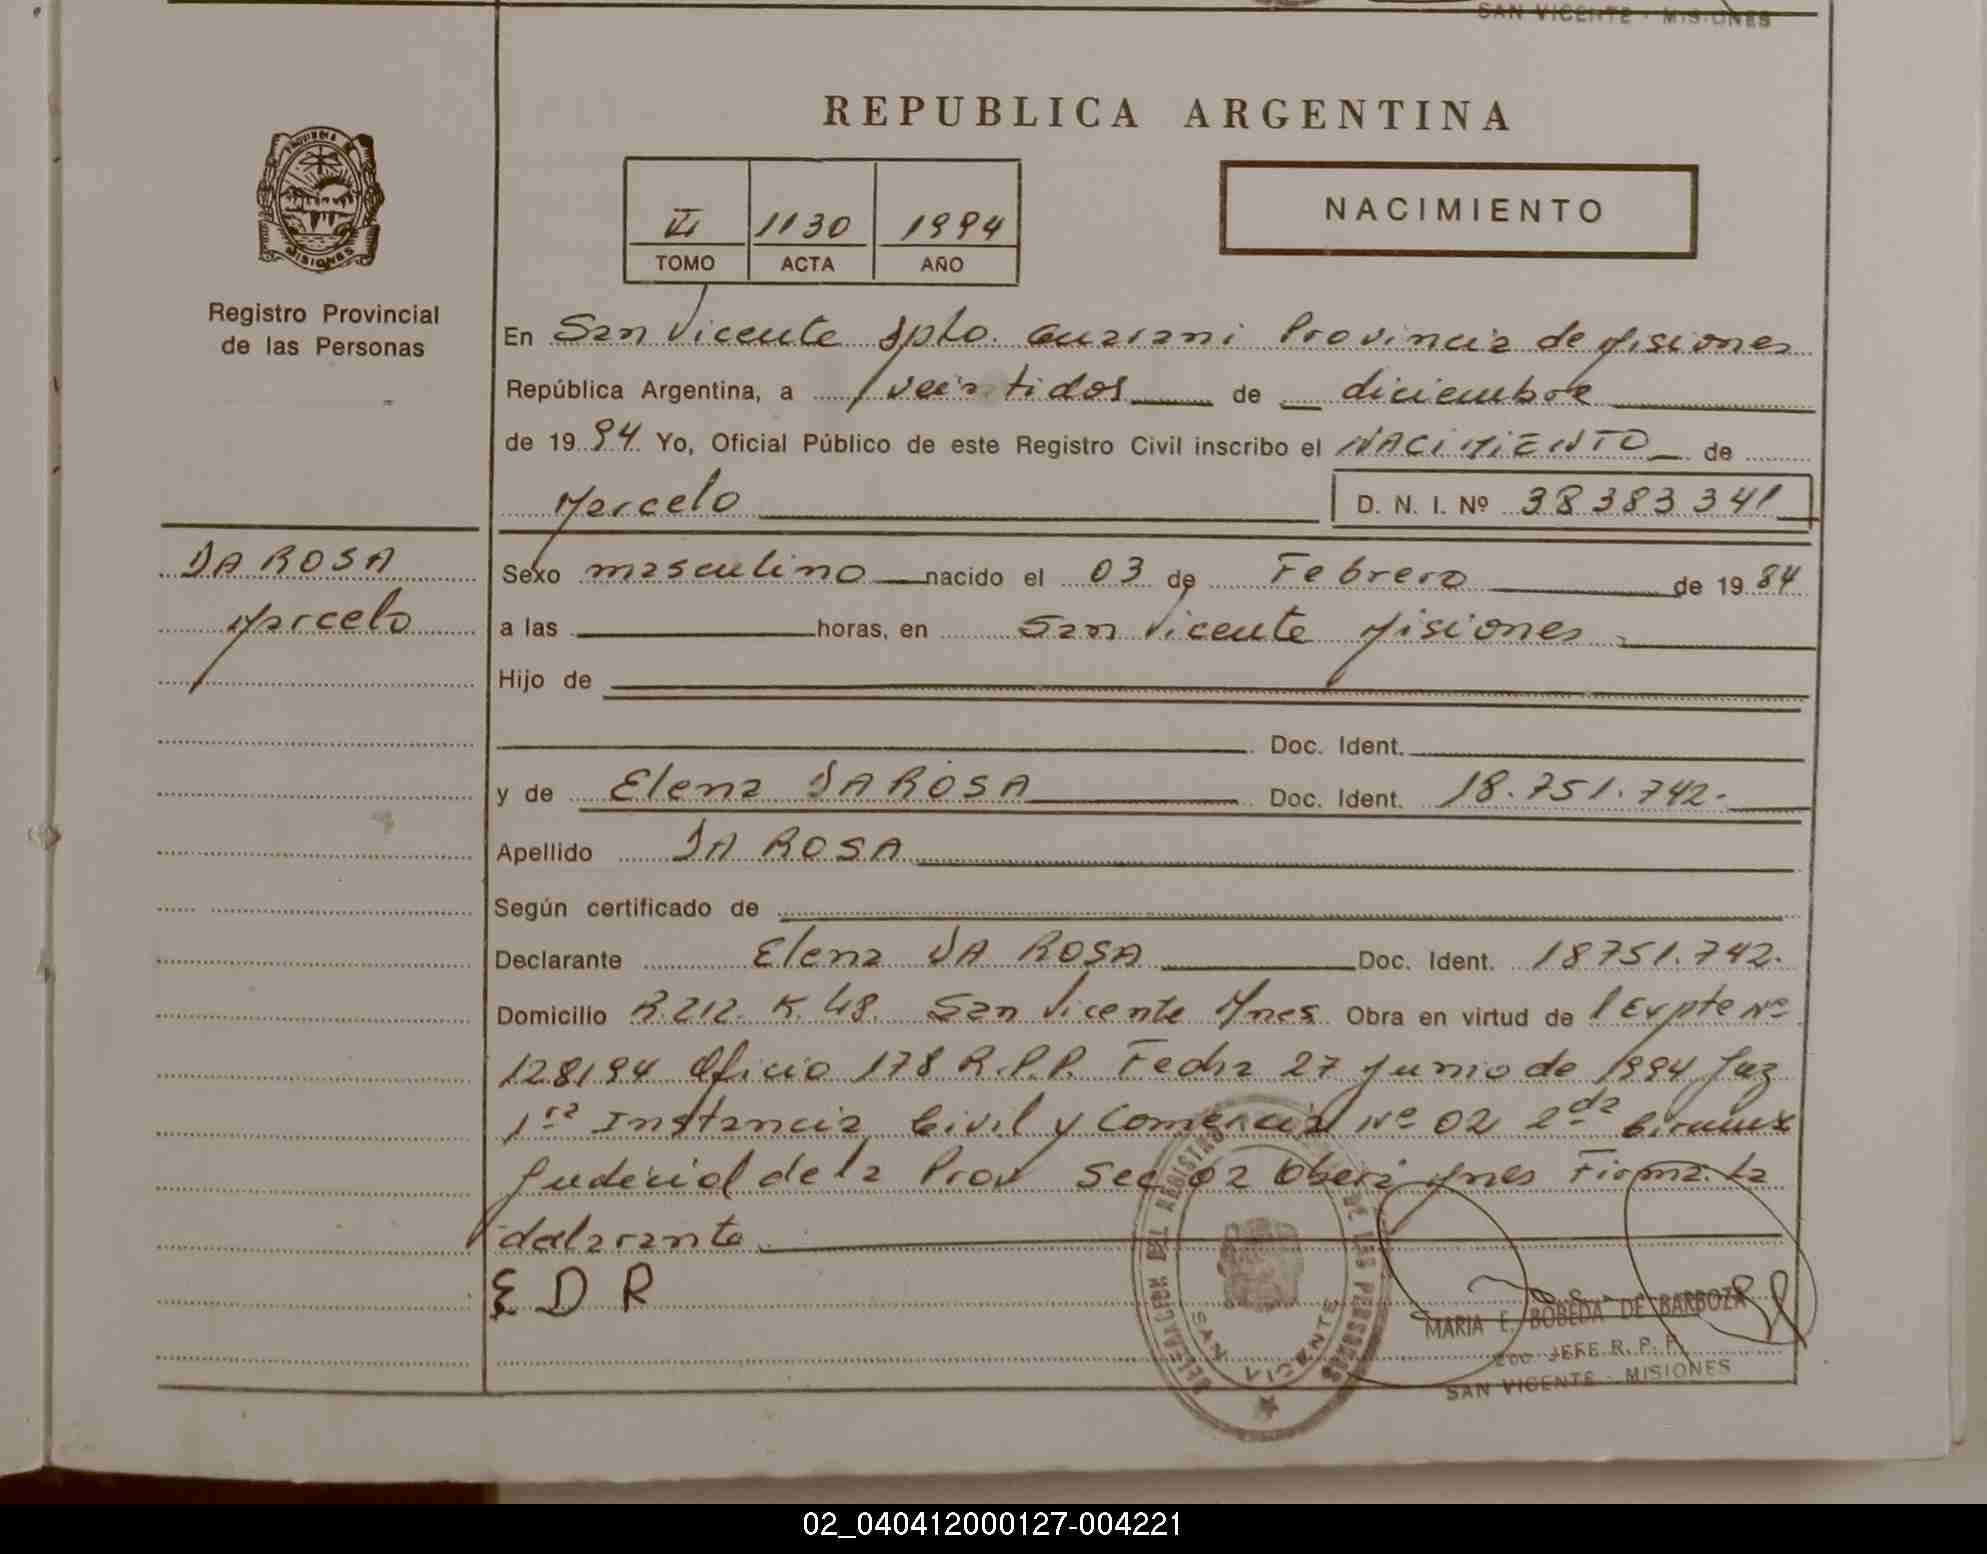 SAN VICENTE - MISIONES
REPUBLICA ARGENTINA
PROVINCIA DE
MISIONES
Registro Provincial
de las Personas
1130 1994
TOMO ACTA AÑO
NACIMIENTO
En San Vicente Dpto. Guarani Provincia de Misiones
República Argentina, a veintidos de diciembre
de 1994 Yo, Oficial Público de este Registro Civil inscribo el NACIMIENTO de
Marcelo D. N. I. Nº 38383341
DA ROSA
Marcelo
Sexo masculino nacido el 03 de Febrero de 1984
a las horas, en San Vicente Misiones
Hijo de
Doc. Ident.
y de Elena DA ROSA Doc. Ident. 18.751.742.
Apellido DA ROSA
Según certificado de
Declarante Elena DA ROSA Doc. Ident. 18751.742.
Domicilio R.212. K.48. San Vicente Mnes Obra en virtud de l Expte Nº
128194 Oficio 178 R.P.P. Fecha 27 Junio de 1994 Juz
1ra Instancia Civil y Comercial Nº 02 2da
Judicial de la Prov Sec 02 Oberá Mnes Firma. La
declarante
E D R
DELEGACION DEL REGISTRO DE LAS PERSONAS
SAN VICENTE
MARIA E. BOBEDA DE BARBOZA
2do JEFE R. P. P.
SAN VICENTE - MISIONES
02_040412000127-004221